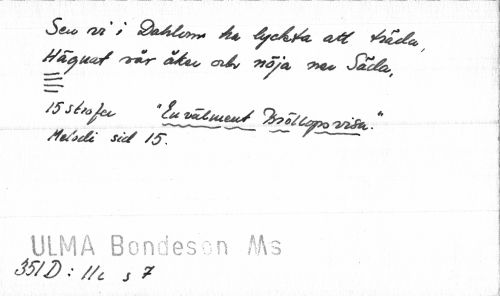 Sen vi i Dahlom ha lyckta att träda,
Hägnat vår åker och nöja men Säda,
15 strofer "En välment Bröllopsvisa."
Melodi sid 15.
ULMA Bondeson Ms
351D: 11c s 7